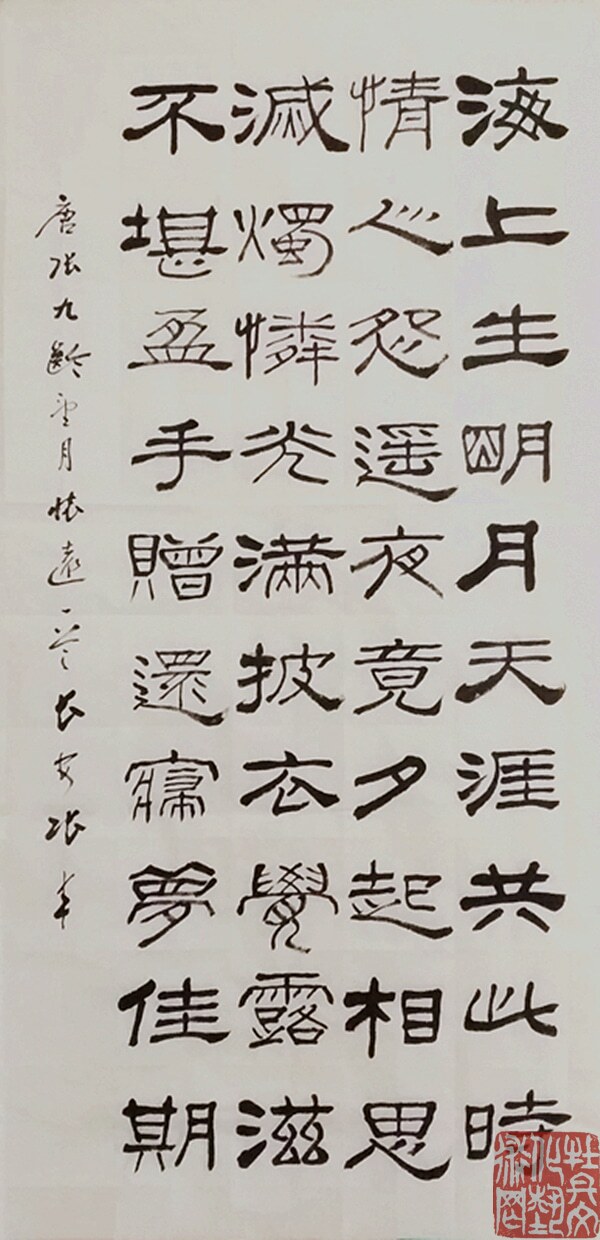 海上生明月天涯共此時
情人怨遥夜竟夕起相思
滅燭憐光滿披衣覺露滋
不堪盈手贈還寢夢佳期
唐张九齡望月怀遠一首长安张